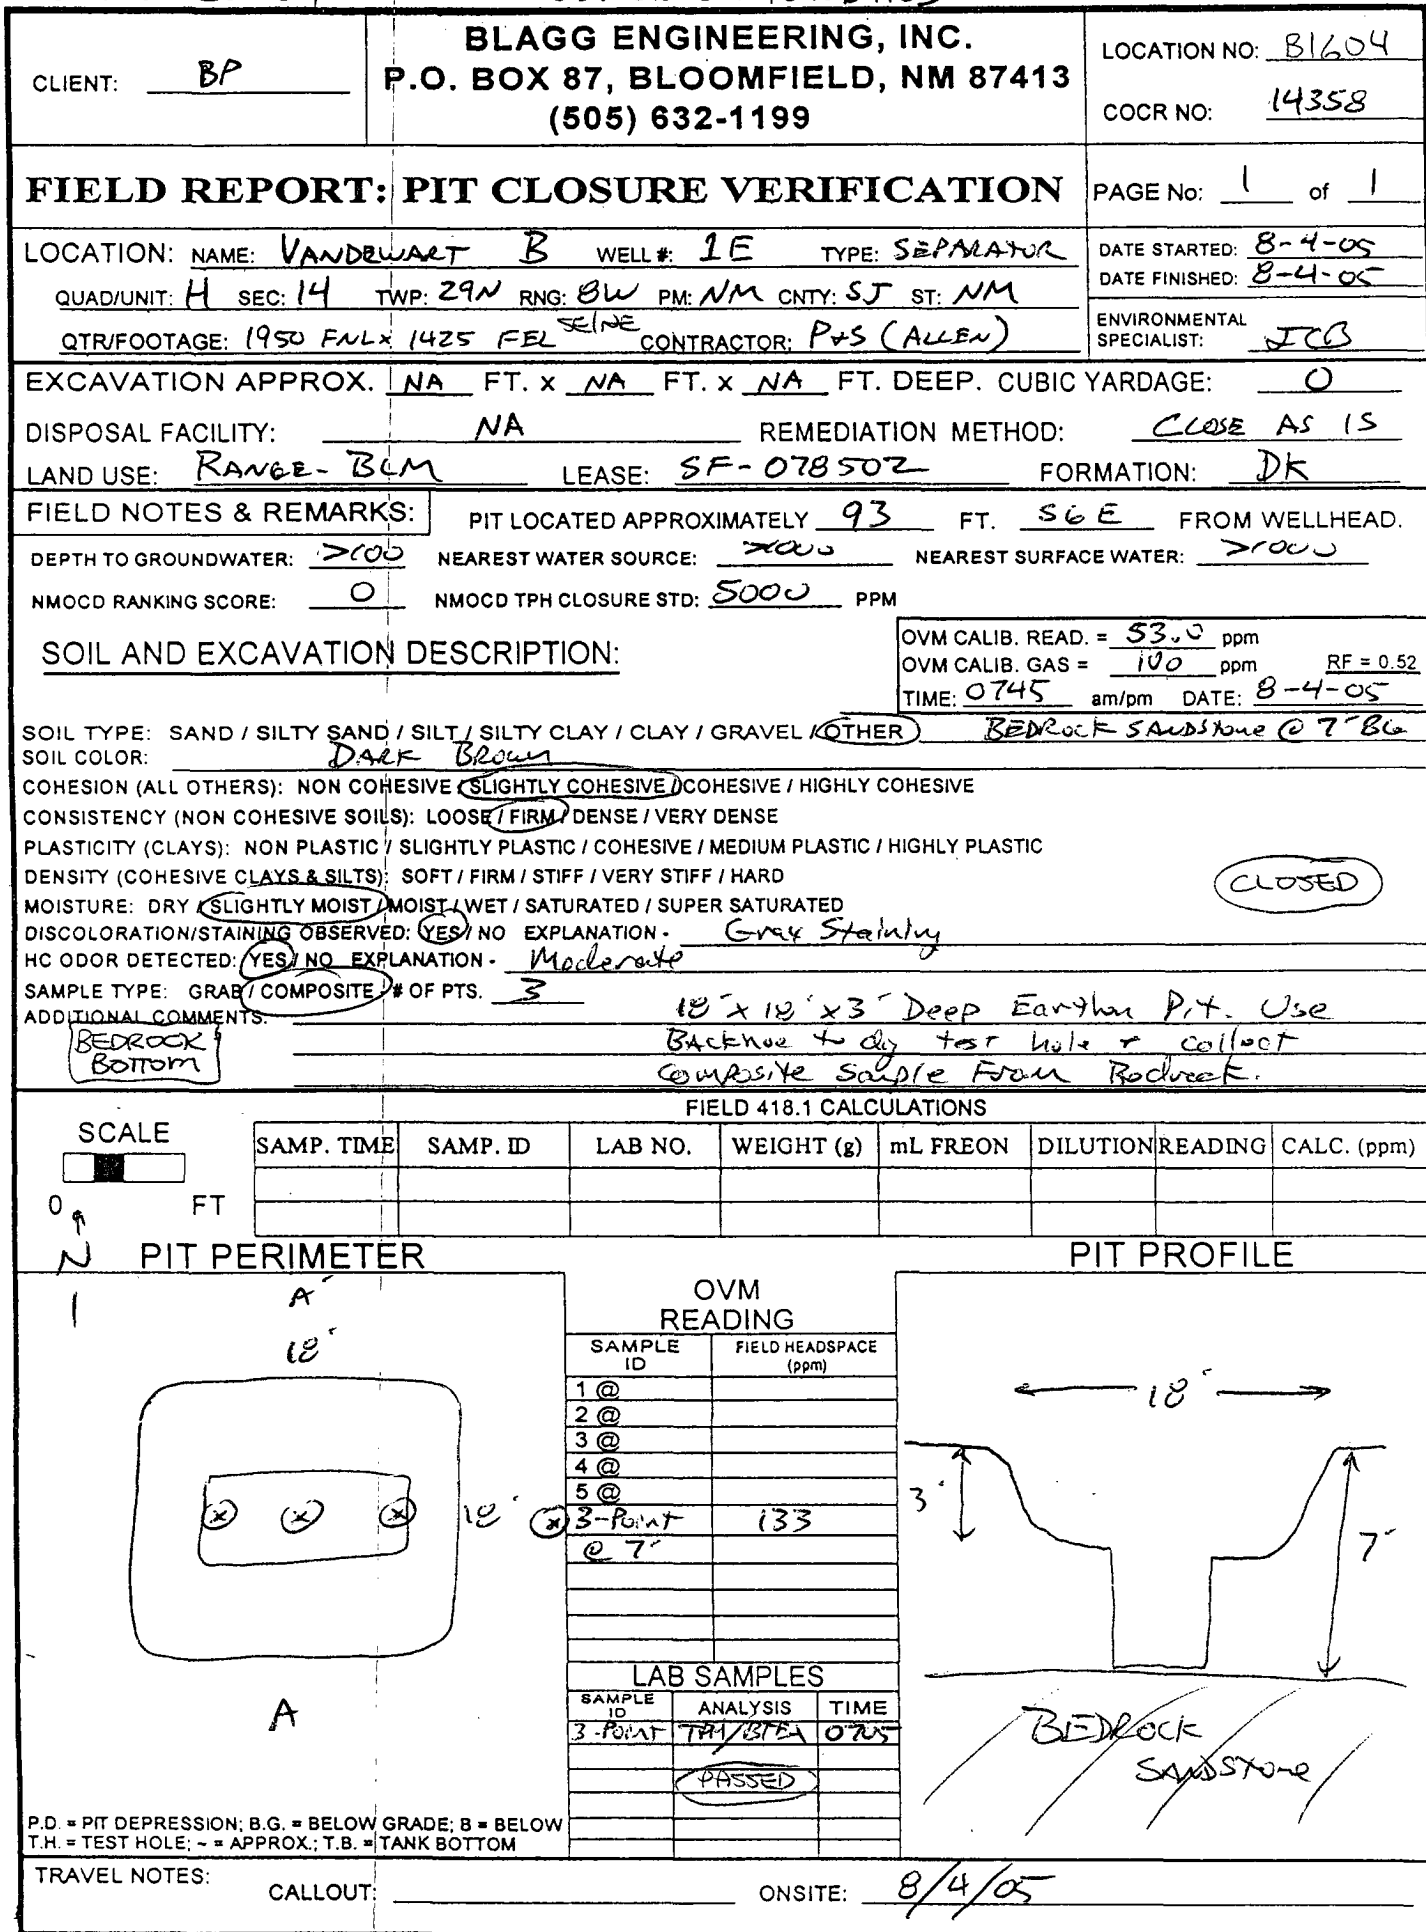 BLAGG ENGINEERING, INC.
P.O. BOX 87, BLOOMFIELD, NM 87413
(505) 632-1199
CLIENT: BP
LOCATION NO: B1604
COCR NO: 14358
FIELD REPORT: PIT CLOSURE VERIFICATION
PAGE No: 1 of 1
LOCATION: NAME: VANDEWART B WELL #: 1E TYPE: SEPARATOR
DATE STARTED: 8-4-05
DATE FINISHED: 8-4-05
QUAD/UNIT: H SEC: 14 TWP: 29N RNG: 8W PM: NM CNTY: SJ ST: NM
QTR/FOOTAGE: 1950 FNL x 1425 FEL SE/NE CONTRACTOR: P+S (ALLEN)
ENVIRONMENTAL
SPECIALIST: JCB
EXCAVATION APPROX. NA FT. x NA FT. x NA FT. DEEP. CUBIC YARDAGE: 0
DISPOSAL FACILITY: NA REMEDIATION METHOD: CLOSE AS IS
LAND USE: RANGE - BLM LEASE: SF-078502 FORMATION: DK
FIELD NOTES & REMARKS: PIT LOCATED APPROXIMATELY 93 FT. S6E FROM WELLHEAD.
DEPTH TO GROUNDWATER: >100 NEAREST WATER SOURCE: >1000 NEAREST SURFACE WATER: >1000
NMOCD RANKING SCORE: 0 NMOCD TPH CLOSURE STD: 5000 PPM
SOIL AND EXCAVATION DESCRIPTION:
OVM CALIB. READ. = 53.0 ppm
OVM CALIB. GAS = 100 ppm RF = 0.52
TIME: 0745 am/pm DATE: 8-4-05
SOIL TYPE: SAND / SILTY SAND / SILT / SILTY CLAY / CLAY / GRAVEL / OTHER BEDROCK SANDSTONE @ 7' BG
SOIL COLOR: DARK BROWN
COHESION (ALL OTHERS): NON COHESIVE / SLIGHTLY COHESIVE / COHESIVE / HIGHLY COHESIVE
CONSISTENCY (NON COHESIVE SOILS): LOOSE / FIRM / DENSE / VERY DENSE
PLASTICITY (CLAYS): NON PLASTIC / SLIGHTLY PLASTIC / COHESIVE / MEDIUM PLASTIC / HIGHLY PLASTIC
DENSITY (COHESIVE CLAYS & SILTS): SOFT / FIRM / STIFF / VERY STIFF / HARD
CLOSED
MOISTURE: DRY / SLIGHTLY MOIST / MOIST / WET / SATURATED / SUPER SATURATED
DISCOLORATION/STAINING OBSERVED: YES / NO EXPLANATION - Gray Staining
HC ODOR DETECTED: YES / NO EXPLANATION - Moderate
SAMPLE TYPE: GRAB / COMPOSITE # OF PTS. 3
ADDITIONAL COMMENTS: 18' x 18' x 3' Deep Earthen Pit. Use
Backhoe to dig test hole + collect
Composite Sample From Bedrock.
BEDROCK
BOTTOM
FIELD 418.1 CALCULATIONS
SCALE
0 FT
SAMP. TIME SAMP. ID LAB NO. WEIGHT (g) mL FREON DILUTION READING CALC. (ppm)
N
PIT PERIMETER
A'
18'
18'
A
OVM
READING
SAMPLE
ID
FIELD HEADSPACE
(ppm)
1 @
2 @
3 @
4 @
5 @
3-Point 133
@ 7'
LAB SAMPLES
SAMPLE
ID
ANALYSIS TIME
3-Point TPH/BTEX
PASSED
PIT PROFILE
18'
3'
7'
BEDROCK
SANDSTONE
P.D. = PIT DEPRESSION; B.G. = BELOW GRADE; B = BELOW
T.H. = TEST HOLE; ~ = APPROX.; T.B. = TANK BOTTOM
TRAVEL NOTES:
CALLOUT: ONSITE: 8/4/05